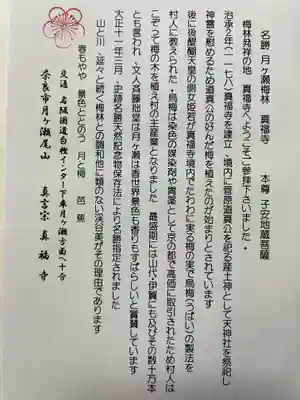 名勝 月ヶ瀬梅林　真福寺　　本尊 子安地蔵菩薩
梅林真福寺へようこそご参拝下さいました・
治承2年(一一七八)真福寺を建立・境内に菅原道真公を祀る産土神として天神社を祭祀し
神霊を慰めるため道真公の好んだ梅を植えたのが始まりとされています
後に後醍醐天皇の側女姫若が真福寺境内でたわわに実る梅の実で烏梅(うばい)の製法を
村人に教えられた・烏梅は染色の媒染剤や胃薬として京の都で高価に取引されたため村人は
こぞって梅の木を植え村の主産業となりました　最盛期には山代・伊賀にも及びその数十万本
とも言われ、文人斉藤拙堂は月ヶ瀬は香世界景色も香りもすばらしいと賞賛しています
大正十一年三月、史跡名勝天然記念物保存法により名勝指定されました
山と川、延々と続く梅林との調和他に類のない渓谷美がその理由であります
春もやや　景色ととのう　月と梅　芭蕉
交通　名阪国道白樫インター下車月ヶ瀬方面へ十分
奈良市月ヶ瀬尾山　真言宗 真福寺